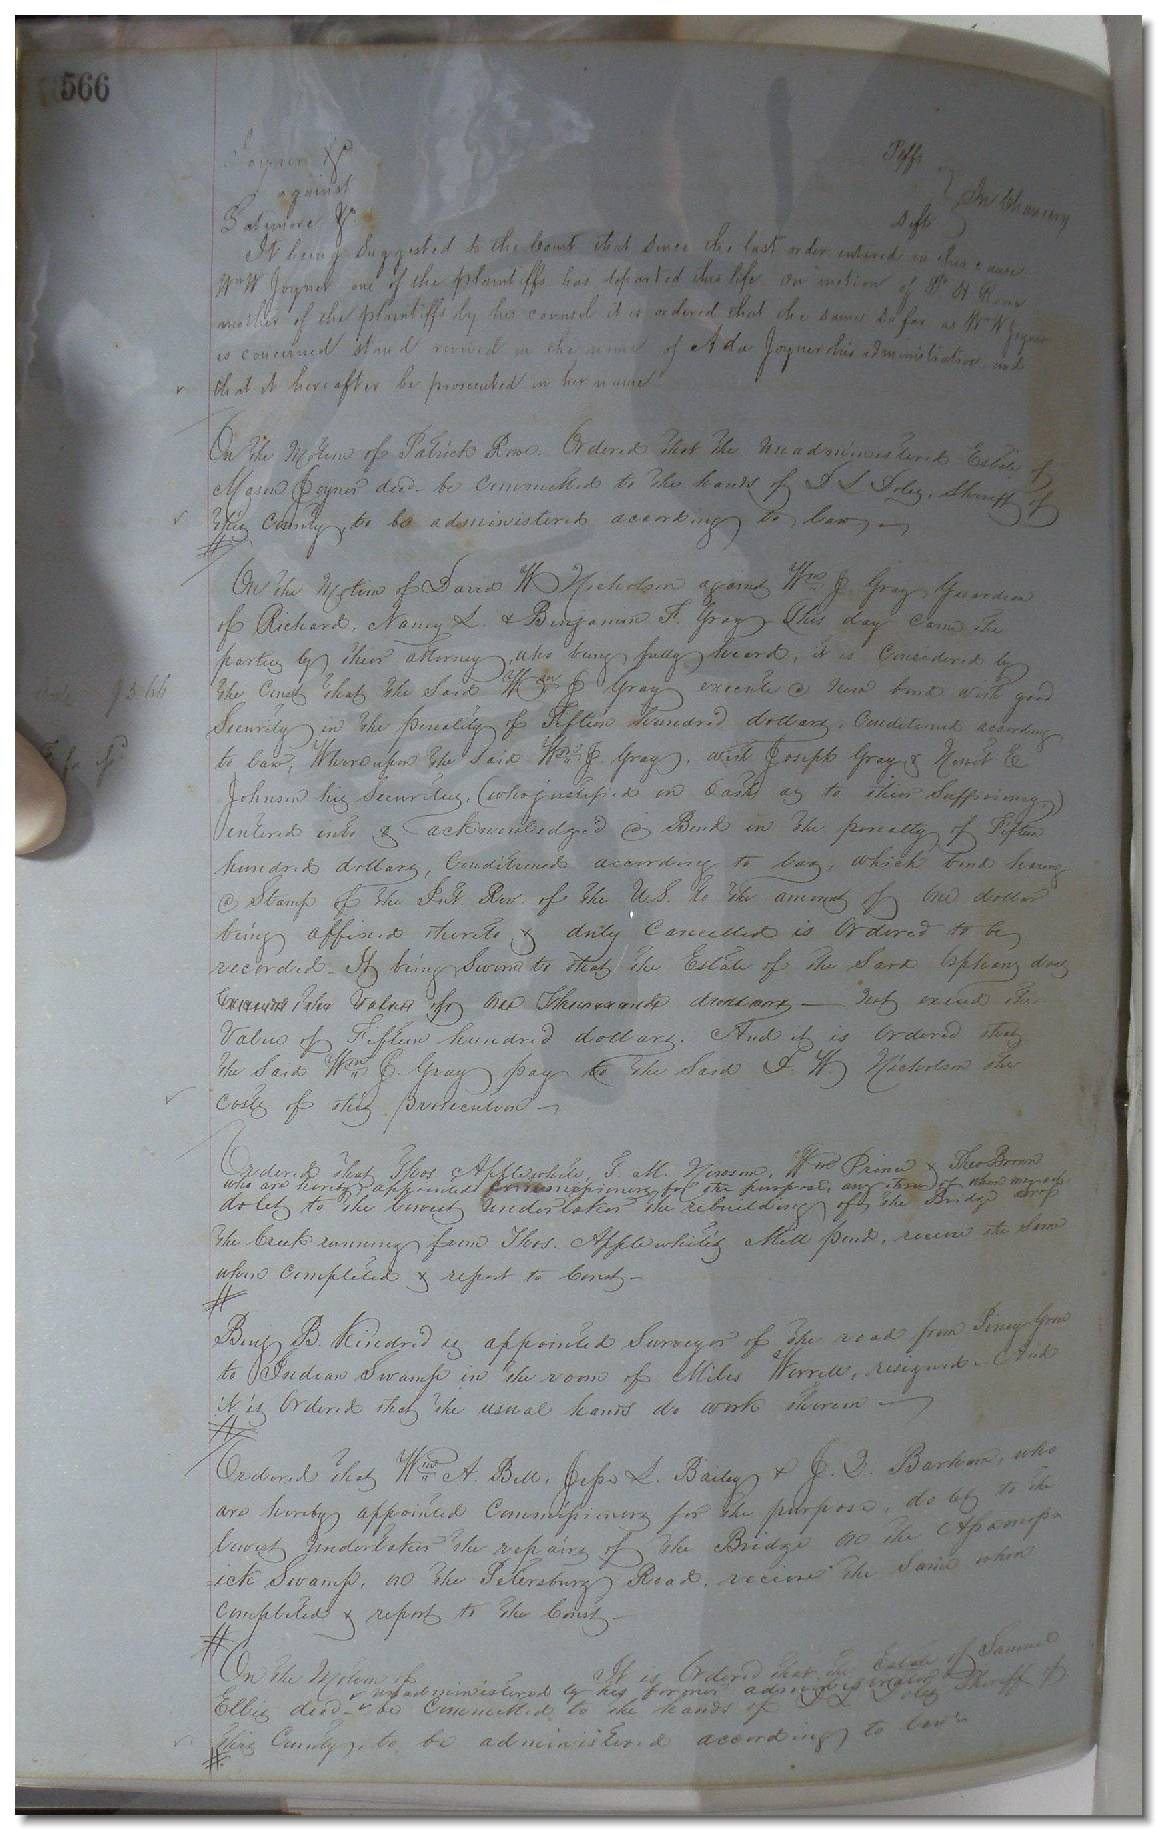 566
Joyner &c Plffs
against In Chancery
Latimore &c Defts
It being suggested to the Court that since the last order entered in this cause
Wm W Joyner one of the plaintiffs has departed this life on motion of P. H Row
another of the plaintiffs by his counsel it is ordered that the same so far as Wm W Joyner
is concerned stand revived in the name of Ada Joyner his administratrix and
that it hereafter be prosecuted in her name
On the Motion of Patrick Row. Ordered that the unadministered Estate of
Mason Joyner decd. be Committed to the hands of Sheriff of
this County, to be administered according to law
On the Motion of David W Nicholson against Wm J. Gray Guardian
of Richard, Nancy L. & Benjamin F. Gray, This day Came the
parties by their attorney, who being fully heard, it is Considered by
the Court that the Said Wm J Gray execute a New bond with good
Security in the penalty of Fifteen hundred dollars, Conditioned according
to law, Whereupon the Said Wm J. Gray, with Joseph Gray & E
Johnson his Securities, (who justified on Oath as to their Sufficiency)
entered into & acknowledged a Bond in the penalty of Fifteen
hundred dollars, Conditioned according to law, which bond having
a Stamp of the Int Rev. of the U.S. to the amount of One dollar
being affixed thereto & duly Cancelled is Ordered to be
recorded. It being Sworn to that the Estate of the Said Orphans does
not exceed the
Value of Fifteen hundred dollars. And it is Ordered that
the Said Wm J. Gray pay to the Said D. W. Nicholson the
costs of this prosecution
Ordered that Thos Applewhite, Wm Prince & Theo Brown
who are hereby appointed Commissioners for the purpose, any three of whom may act
do let to the lowest undertaker the rebuilding of the Bridge
the Creek running from Thos. Applewhite's Mill pond, receive the Same
when Completed & report to Court
Benj B. Kindred is appointed Surveyor of the road from Piney Grove
to Indian Swamp in the room of Miles Worrell, resigned. And
it is Ordered that the usual hands do work thereon
Ordered that Wm A. Bell, Jesse L. Bailey & J. D. Barham, who
are hereby appointed Commissioners for the purpose, do let to the
lowest undertaker the repairs of the Bridge on the Assamoos-
ick Swamp, on the Petersburg Road, receive the Same when
Completed & report to the Court
On the Motion of It is Ordered that the Estate of Samuel
unadministered by his former administrator
Ellis decd. be Committed to the hands of Sheriff of
this County, to be administered according to law